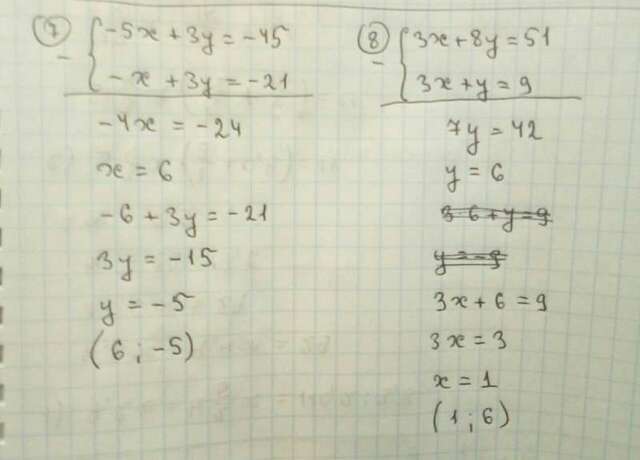 7
-5x + 3y = -45
-
-x + 3y = -21
-4x = -24
x = 6
-6 + 3y = -21
3y = -15
y = -5
(6 ; -5)
8
3x + 8y = 51
-
3x + y = 9
7y = 42
y = 6
3·6 + y = 9
y = -9
3x + 6 = 9
3x = 3
x = 1
(1 ; 6)